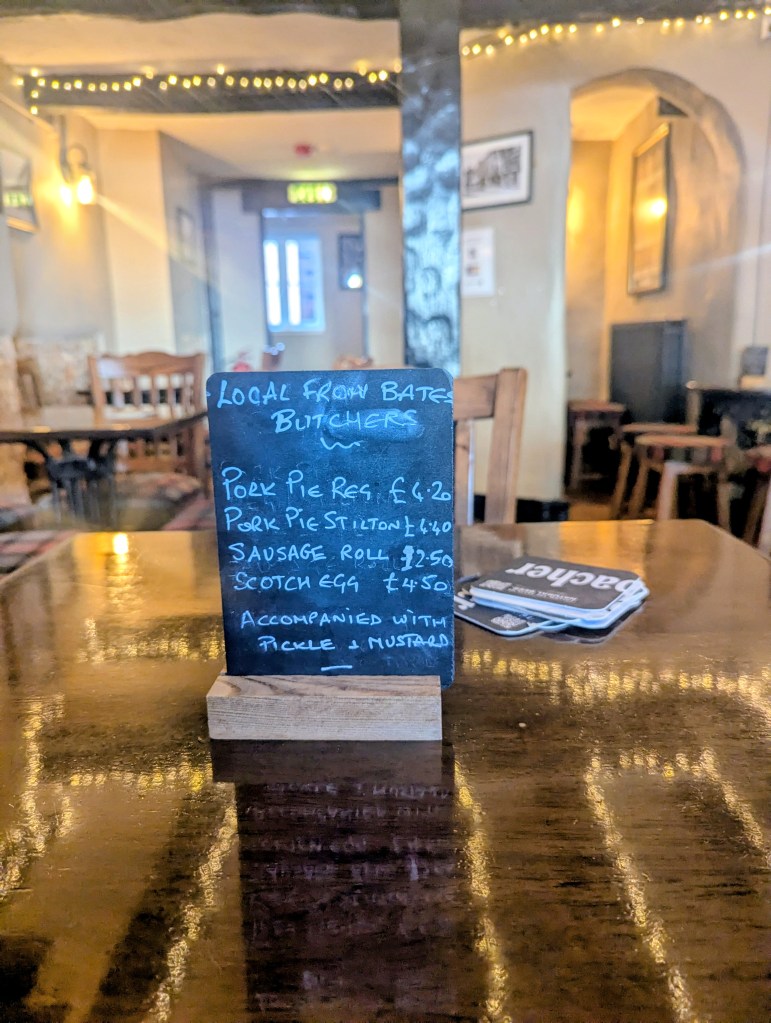 LOCAL FROM BATES
BUTCHERS
PORK PIE REG £4.20
PORK PIE STILTON £4.40
SAUSAGE ROLL £2.50
SCOTCH EGG £4.50
ACCOMPANIED WITH
PICKLE & MUSTARD
bacher